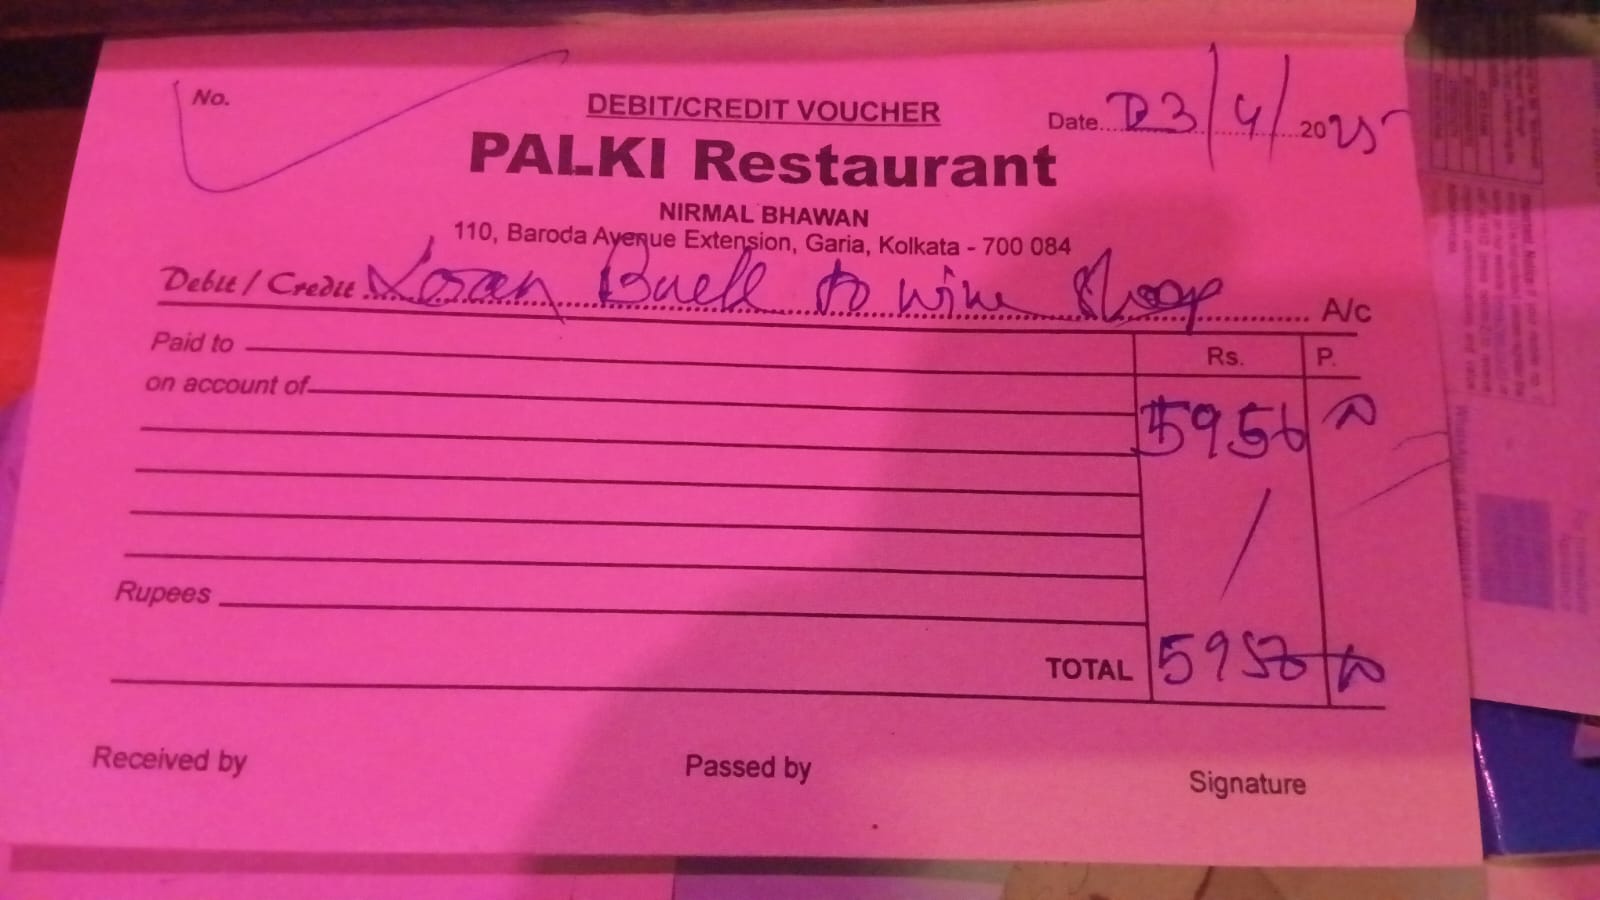 No.
DEBIT/CREDIT VOUCHER
Date 23/4/2025
PALKI Restaurant
NIRMAL BHAWAN
110, Baroda Avenue Extension, Garia, Kolkata - 700 084
Debit / Credit Loan Back to wine Shop A/c
Paid to
Rs. P.
on account of
5956
Rupees
TOTAL 5956
Received by Passed by Signature